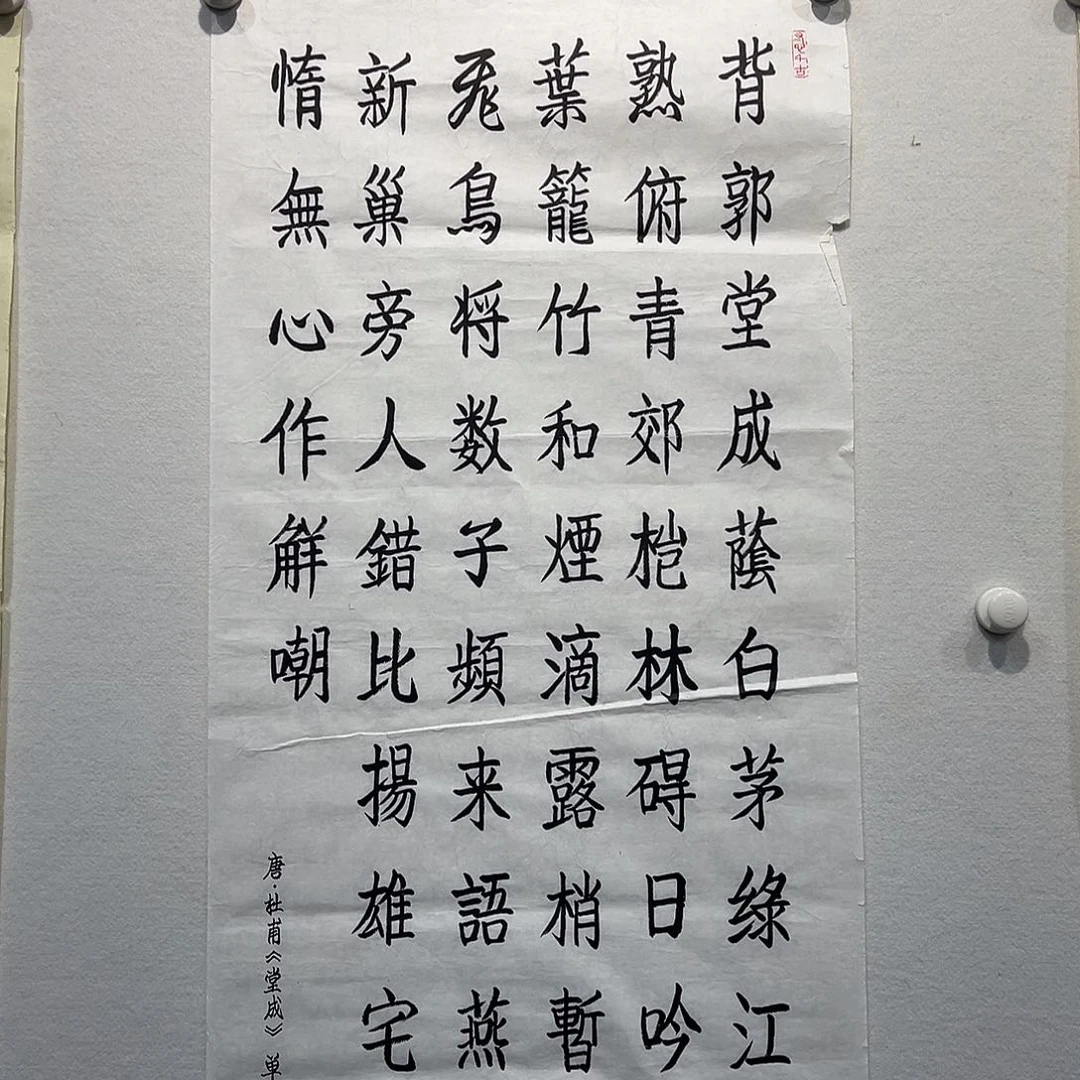 背郭堂成蔭白茅緣江
熟俯青郊桤林碍日吟
葉籠竹和煙滴露梢暫
鳥将数子頻来語燕
新巢旁人錯比揚雄宅
惰無心作觧嘲
唐·杜甫《堂成》单